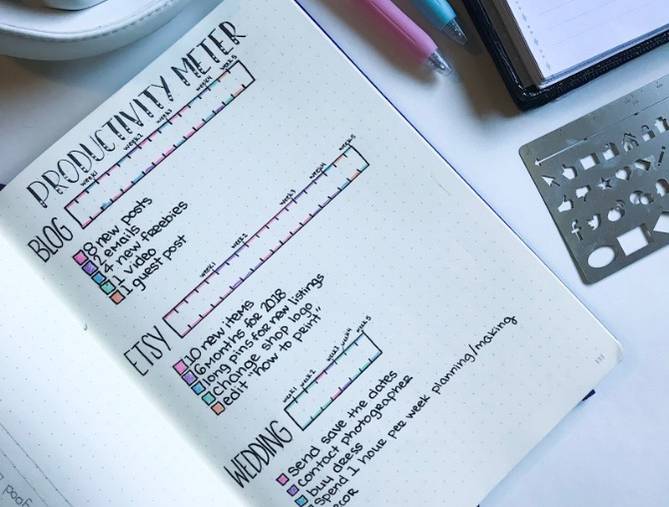 PRODUCTIVITY METER
BLOG
week 1 week 2 week 3 week 4 week 5
8 new posts
2 emails
4 new freebies
1 video
1 guest post
ETSY
week 1 week 2 week 3 week 4 week 5
10 new items
6 months for 2018
long pins for new listings
change shop logo
edit "how to print"
WEDDING
week 1 week 2 week 3 week 4 week 5
send save the dates
contact photographer
buy dress
spend 1 hour per week planning/making